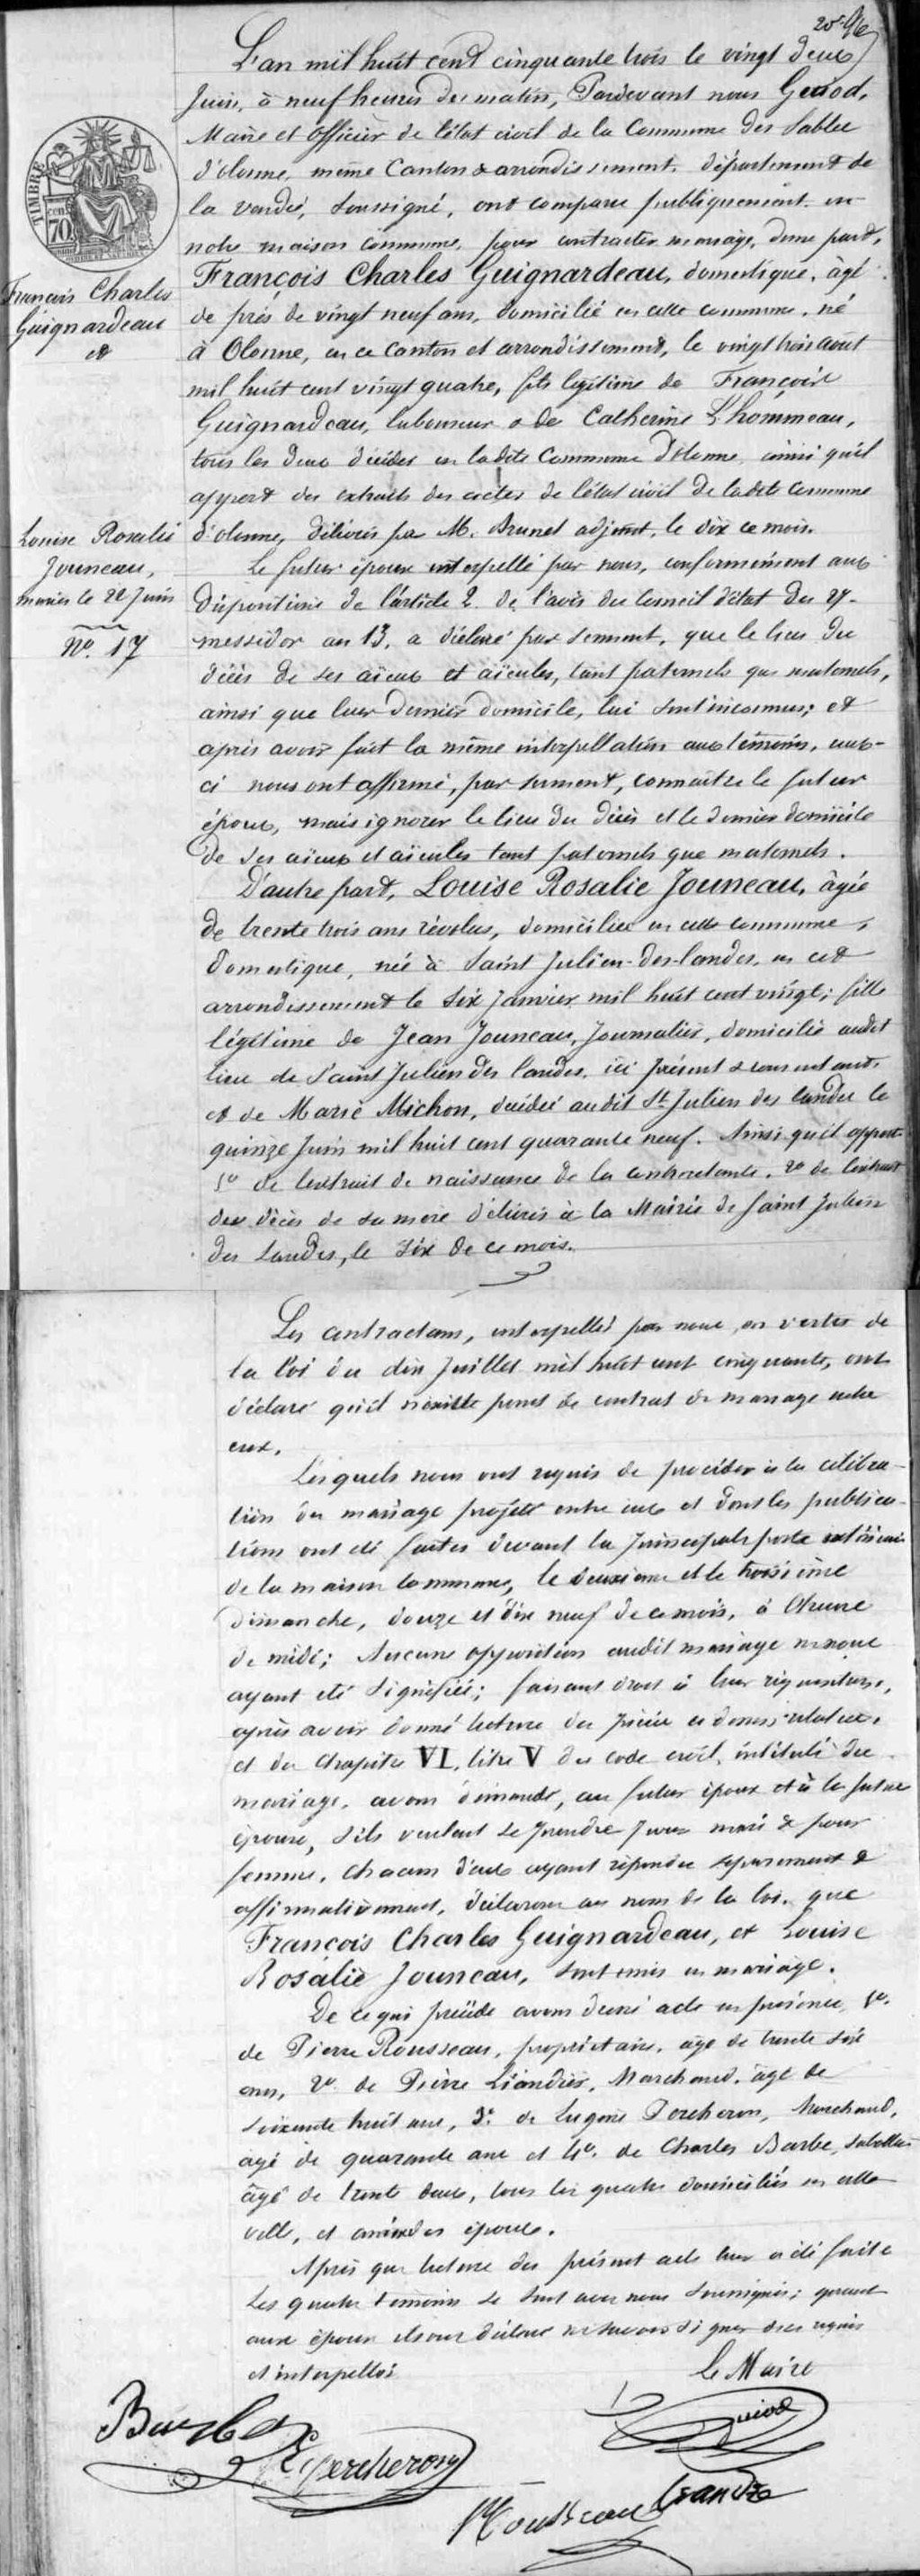 20e f/te
L'an mil huit cent cinquante trois le vingt deux
Juin, à neuf heures du matin, Pardevant nous Guiod,
Maire et officier de l'état civil de la Commune des Sables
d'olonne, même Canton & arrondissement, département de
la vendée, soussigné, ont comparu publiquement en
notre maison commune, pour contracter mariage, d'une part,
TIMBRE
70
François Charles Guignardeau, domestique, âgé
de près de vingt neuf ans, domicilié en cette commune, né
à Olonne, en ce Canton et arrondissement, le vingt trois août
mil huit cent vingt quatre, fils légitime de François
Guignardeau, laboureur & de Catherine L'hommeau,
tous les deux décédés en ladite Commune d'olonne, ainsi qu'il
appert des extraits des actes de l'état civil de ladite Commune
d'olonne, délivrés par M. Brunet adjoint, le dix ce mois.
François Charles
Guignardeau
et
Louise Rosalie
Jouneau,
mariés le 22 Juin
No. 17
Le futur époux interpellé par nous, conformément aux
dispositions de l'article 2 de l'avis du Conseil d'état du 27
messidor an 13, a déclaré par serment, que le lieu du
décès de ses aïeux et aïeules, tant paternels que maternels,
ainsi que leur dernier domicile, lui sont inconnus; et
après avoir fait la même interpellation aux témoins, ceux-
ci nous ont affirmé, par serment, connaître le futur
époux, mais ignorer le lieu du décès et le dernier domicile
de ses aïeux et aïeules tant paternels que maternels.
D'autre part, Louise Rosalie Jouneau, âgée
de trente trois ans révolus, domiciliée en cette commune,
domestique, née à Saint Julien-des-landes, en cet
arrondissement le six Janvier mil huit cent vingt; fille
légitime de Jean Jouneau, Journalier, domicilié audit
lieu de Saint Julien des landes, ici présent & consentant,
et de Marie Michon, décédée audit St Julien des landes le
quinze Juin mil huit cent quarante neuf. Ainsi qu'il appert
1o de l'extrait de naissance de la contractante, 2o de l'extrait
des décès de sa mère délivrés à la Mairie de Saint Julien
des Landes, le six de ce mois.
Les contractans, interpellés par nous, en vertu de
la loi du dix Juillet mil huit cent cinquante, ont
déclaré qu'il n'existe point de contrat de mariage entre
eux.
Lesquels nous ont requis de procéder à la célébra-
tion du mariage projeté entre eux et dont les publica-
tions ont été faites devant la principale porte extérieure
de la maison commune, le deuxième et le troisième
dimanche, douze et dix neuf de ce mois, à l'heure
de midi; Aucune opposition audit mariage ne nous
ayant été signifiée; faisant droit à leur réquisition,
après avoir donné lecture des pièces ci dessus relatées,
et du Chapitre VI, titre V du code civil, intitulé du
mariage, avons demandé, au futur époux et à la future
épouse, s'ils veulent se prendre pour mari & pour
femme, chacun d'eux ayant répondu séparément &
affirmativement, déclarons au nom de la loi, que
François Charles Guignardeau, et Louise
Rosalie Jouneau, sont unis en mariage.
De ce qui précède avons dressé acte en présence, 1o.
de Pierre Rousseau, propriétaire, âgé de trente six
ans, 2o de Pierre Liandrès, Marchand, âgé de
soixante huit ans, 3o. de Eugène Percheron, Marchand,
âgé de quarante ans et 4o. de Charles Barbe, sabotier
âgé de trente deux, tous les quatre domiciliés en cette
ville, et amis des époux.
Après que lecture du présent acte leur a été faite
les quatre témoins se sont avec nous soussignés; quant
aux époux ils ont déclaré ne savoir signer de ce requis
et interpellés
Le Maire
Guiod
Barbe
E. Percheron
Rousseau